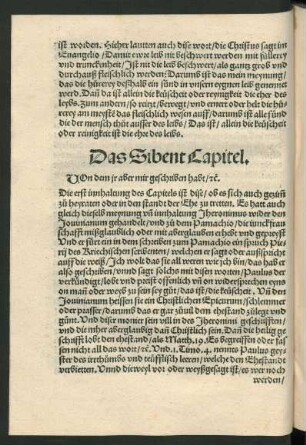 ist worden. Hieher lautten auch dise wort/ die Christus sagt im
Euangelio/ Damit ewre leib nit beschwert werden mit füllerey
vnd trunckenheit/ Ist nit die leib beschwert/ als gantz groß vnd
durchauß fleischlich werden: Darumb ist das mein meynung/
das die hůrerey deßhalb ein sünd in vnsern eygnen leib genennet
werd. Das da ist allein die keüscheit oder reynigkeit die ehr des
leybs. Zum andern/ so reitzt/ bewegt/ vnd
erymeyste das fleischlich wesen auff/ darumb ist alle sünd
die der mensch thůt ausser des leibs/ Das ist/ allein die keüscheit
oder reinigkeit ist die ehre des leibs.
Das Sibent Capitel.
VOn dem jr aber mir geschriben habt/ ꝛc.
Die erst innhaltung des Capitels ist dise/ ob es sich auch gezim
zů heyraten oder in den standt der Ehe zů tretten. Es hatt auch
gleich dieselb meynung vnd innhaltung Jheronimus wider den
Jouinianum gehandelt/ vnd zů dem Pamachio/ die trunck frünt
schafft mißglaublich oder mit aberglauben erhebt vnd gepreyßt
Vnd er fürt ein in dem schreiben zum Pamachio ein spruch Pie
rij des Kriechischen scribenten/ welcher er sagt der außspricht
auff die weiß/ Ich wolt das sie all weren wie ich bin/ das hab er
also geschriben/ vnnd sagt solchs mit disen worten/ Paulus der
verkündigt/ lobt vnd preißt offenlich on widersprechen eyns
on man oder weyb zů sein sey gůt/ das ist/ die keüscheit. Vñ den
Jouinianum heissen sie ein Christlichen Epicurum/ schlemmer
oder prasser/ darumb das er gar züuil dem ehestand zůlegt vnd
günt. Vnd diser monier sein vill in des Jheronimi geschrifften/
vnd die mher aberglaubig dañ Christlich sein. Dañ die heilig ge
schrifft lobt den ehestand/ als Matth. 19. Es begreiffen oder fas
sen nicht all das wort/ ꝛc. Vnd. 1. Timo. 4. nennts Paulus gey
ster des irrthumbs vnd teüfflisch leren/ welche den Ehestandt
verbietten. Vnnd die weyl vor oder weyßgesagt ist/ es wer noch
werden/